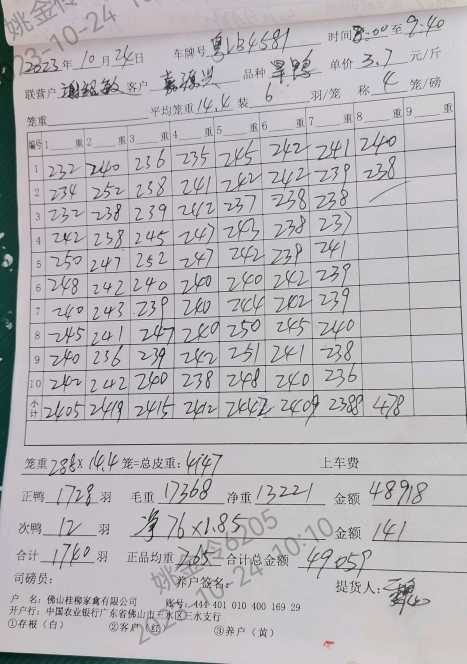 2023年10月24日 车牌号粤 时间8:00至9:40
联营户 客户 品种 单价3.7元/斤
笼重 平均笼重14.4 装6羽/笼 称4笼/磅
编号 1 重 2 重 3 重 4 重 5 重 6 重 7 重 8 重 9 重
1 232 240 236 235 245 242 241 240
2 234 252 238 241 242 242 239 238
3 232 238 239 242 237 238 238
4 242 238 245 247 243 238 237
5 250 247 252 247 242 239 241
6 248 242 240 240 240 242 239
7 240 243 239 240 244 242 239
8 245 241 247 240 250 245 240
9 240 236 239 242 251 241 238
10 242 242 240 238 248 240 236
小计 2405 2419 2415 2412 2442 2409 2388 478
笼重288×14.4笼=总皮重:4147 上车费
正鸭1728羽 毛重17368 净重13221 金额48918
次鸭12羽 净76×1.85 金额141
合计1740羽 正品均重7.65 合计总金额49059
司磅员: 养户签名: 提货人:
户 名:佛山桂柳家禽有限公司 账号:444 401 010 400 169 29
开户行:中国农业银行广东省佛山市三水区三水支行
①存根(白) ②客户(红) ③养户(黄)
姚金伶6205
2023-10-24 10:10